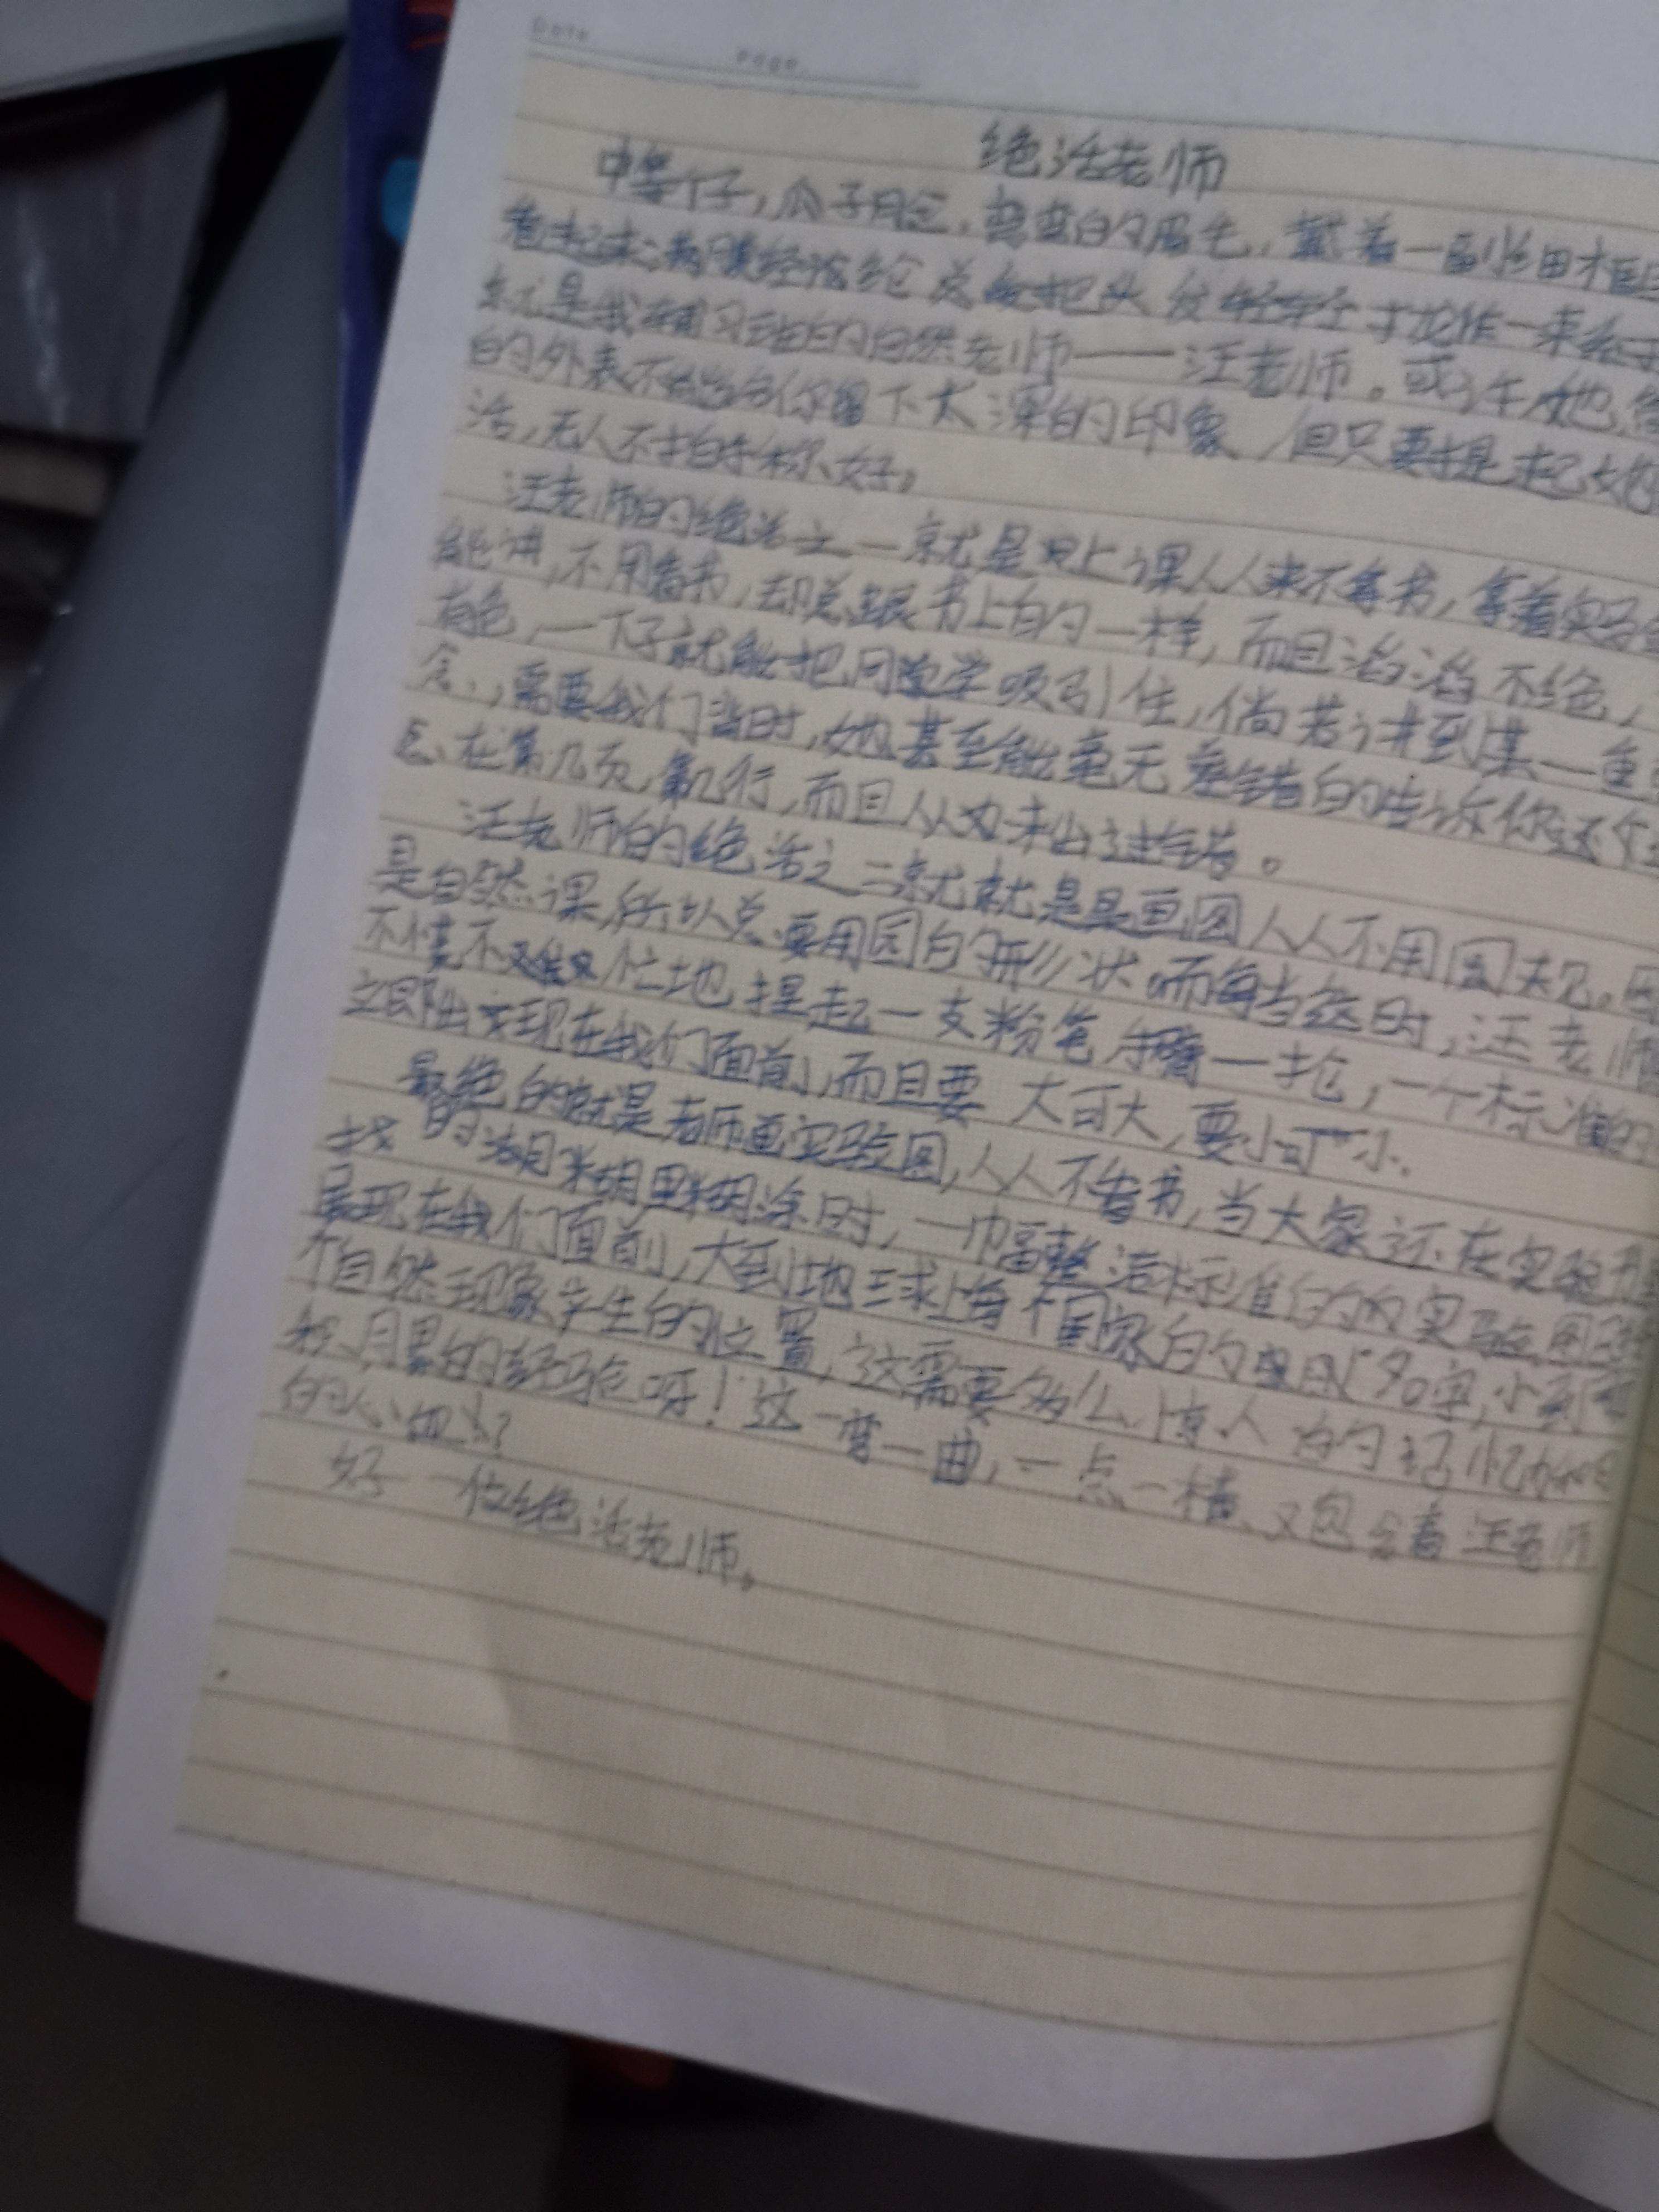 Date
Page
绝活老师
中等个子，瓜子脸，弯弯的眉毛，戴着一副
看起来满腹经论纶 总爱把头发 扎作一束
就是我补习班的自然老师——汪老师。或许她
的外表不能给你留下太深的印象，但只要提起她
活，无人不拍手称好。
汪老师的绝活之一就是上课人人来不拿书，拿着
能讲，不用看书，却总跟书上的一样，而且滔滔不绝，
有色，一下子就能把同学吸引住，倘若讲到某一重
念，需要我们当时，她甚至能毫无差错的告诉你这个
念在第几页，第几行，而且从为未出过错。
汪老师的绝活之二就就是是画图人人不用圆规。
是自然课，所以总要用圆的形状。而每当这时，汪老师
不慌不忙地捏起一支粉笔手臂一抡，一个标准的
立即出现在我们面前，而且要大可大，要小可小。
最绝的就是老师画实验图，人人不看书，当大家还在实验
找的糊糊里糊涂时，一幅整洁标准的的实验图
呈现在我们面前，大到地球上每个国家的名字，小到
个自然现象产生的位置，这需要多么惊人的记忆
积月累的经验呀！这一弯一曲，一点一横，又包含着汪老师
的心血？
好一位绝活老师。